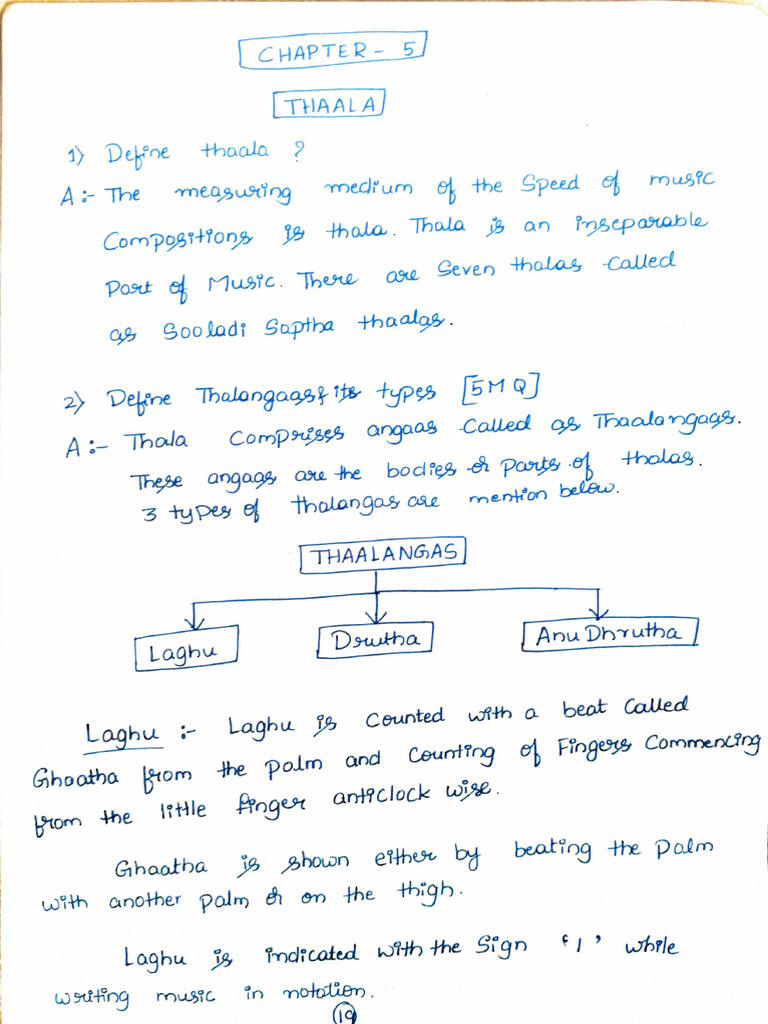 CHAPTER - 5
THAALA
1) Define thaala ?
A:- The measuring medium of the Speed of music
Compositions is thala. Thala is an inseparable
Part of Music. There are Seven thalas called
as Sooladi Saptha thaalas.
2) Define Thalangaas & its types [5 M Q]
A:- Thala Comprises angaas called as Thaalangags.
These angags are the bodies or parts of thalas.
3 types of thalangas are mention below.
THAALANGAS
Laghu Drutha Anu Dhrutha
Laghu :- Laghu is Counted with a beat Called
Ghaatha from the palm and Counting of Fingers Commencing
from the little finger anticlock wise.
Ghaatha is shown either by beating the palm
with another palm or on the thigh.
Laghu is indicated with the Sign ‘ I ’ while
writing music in notation.
19